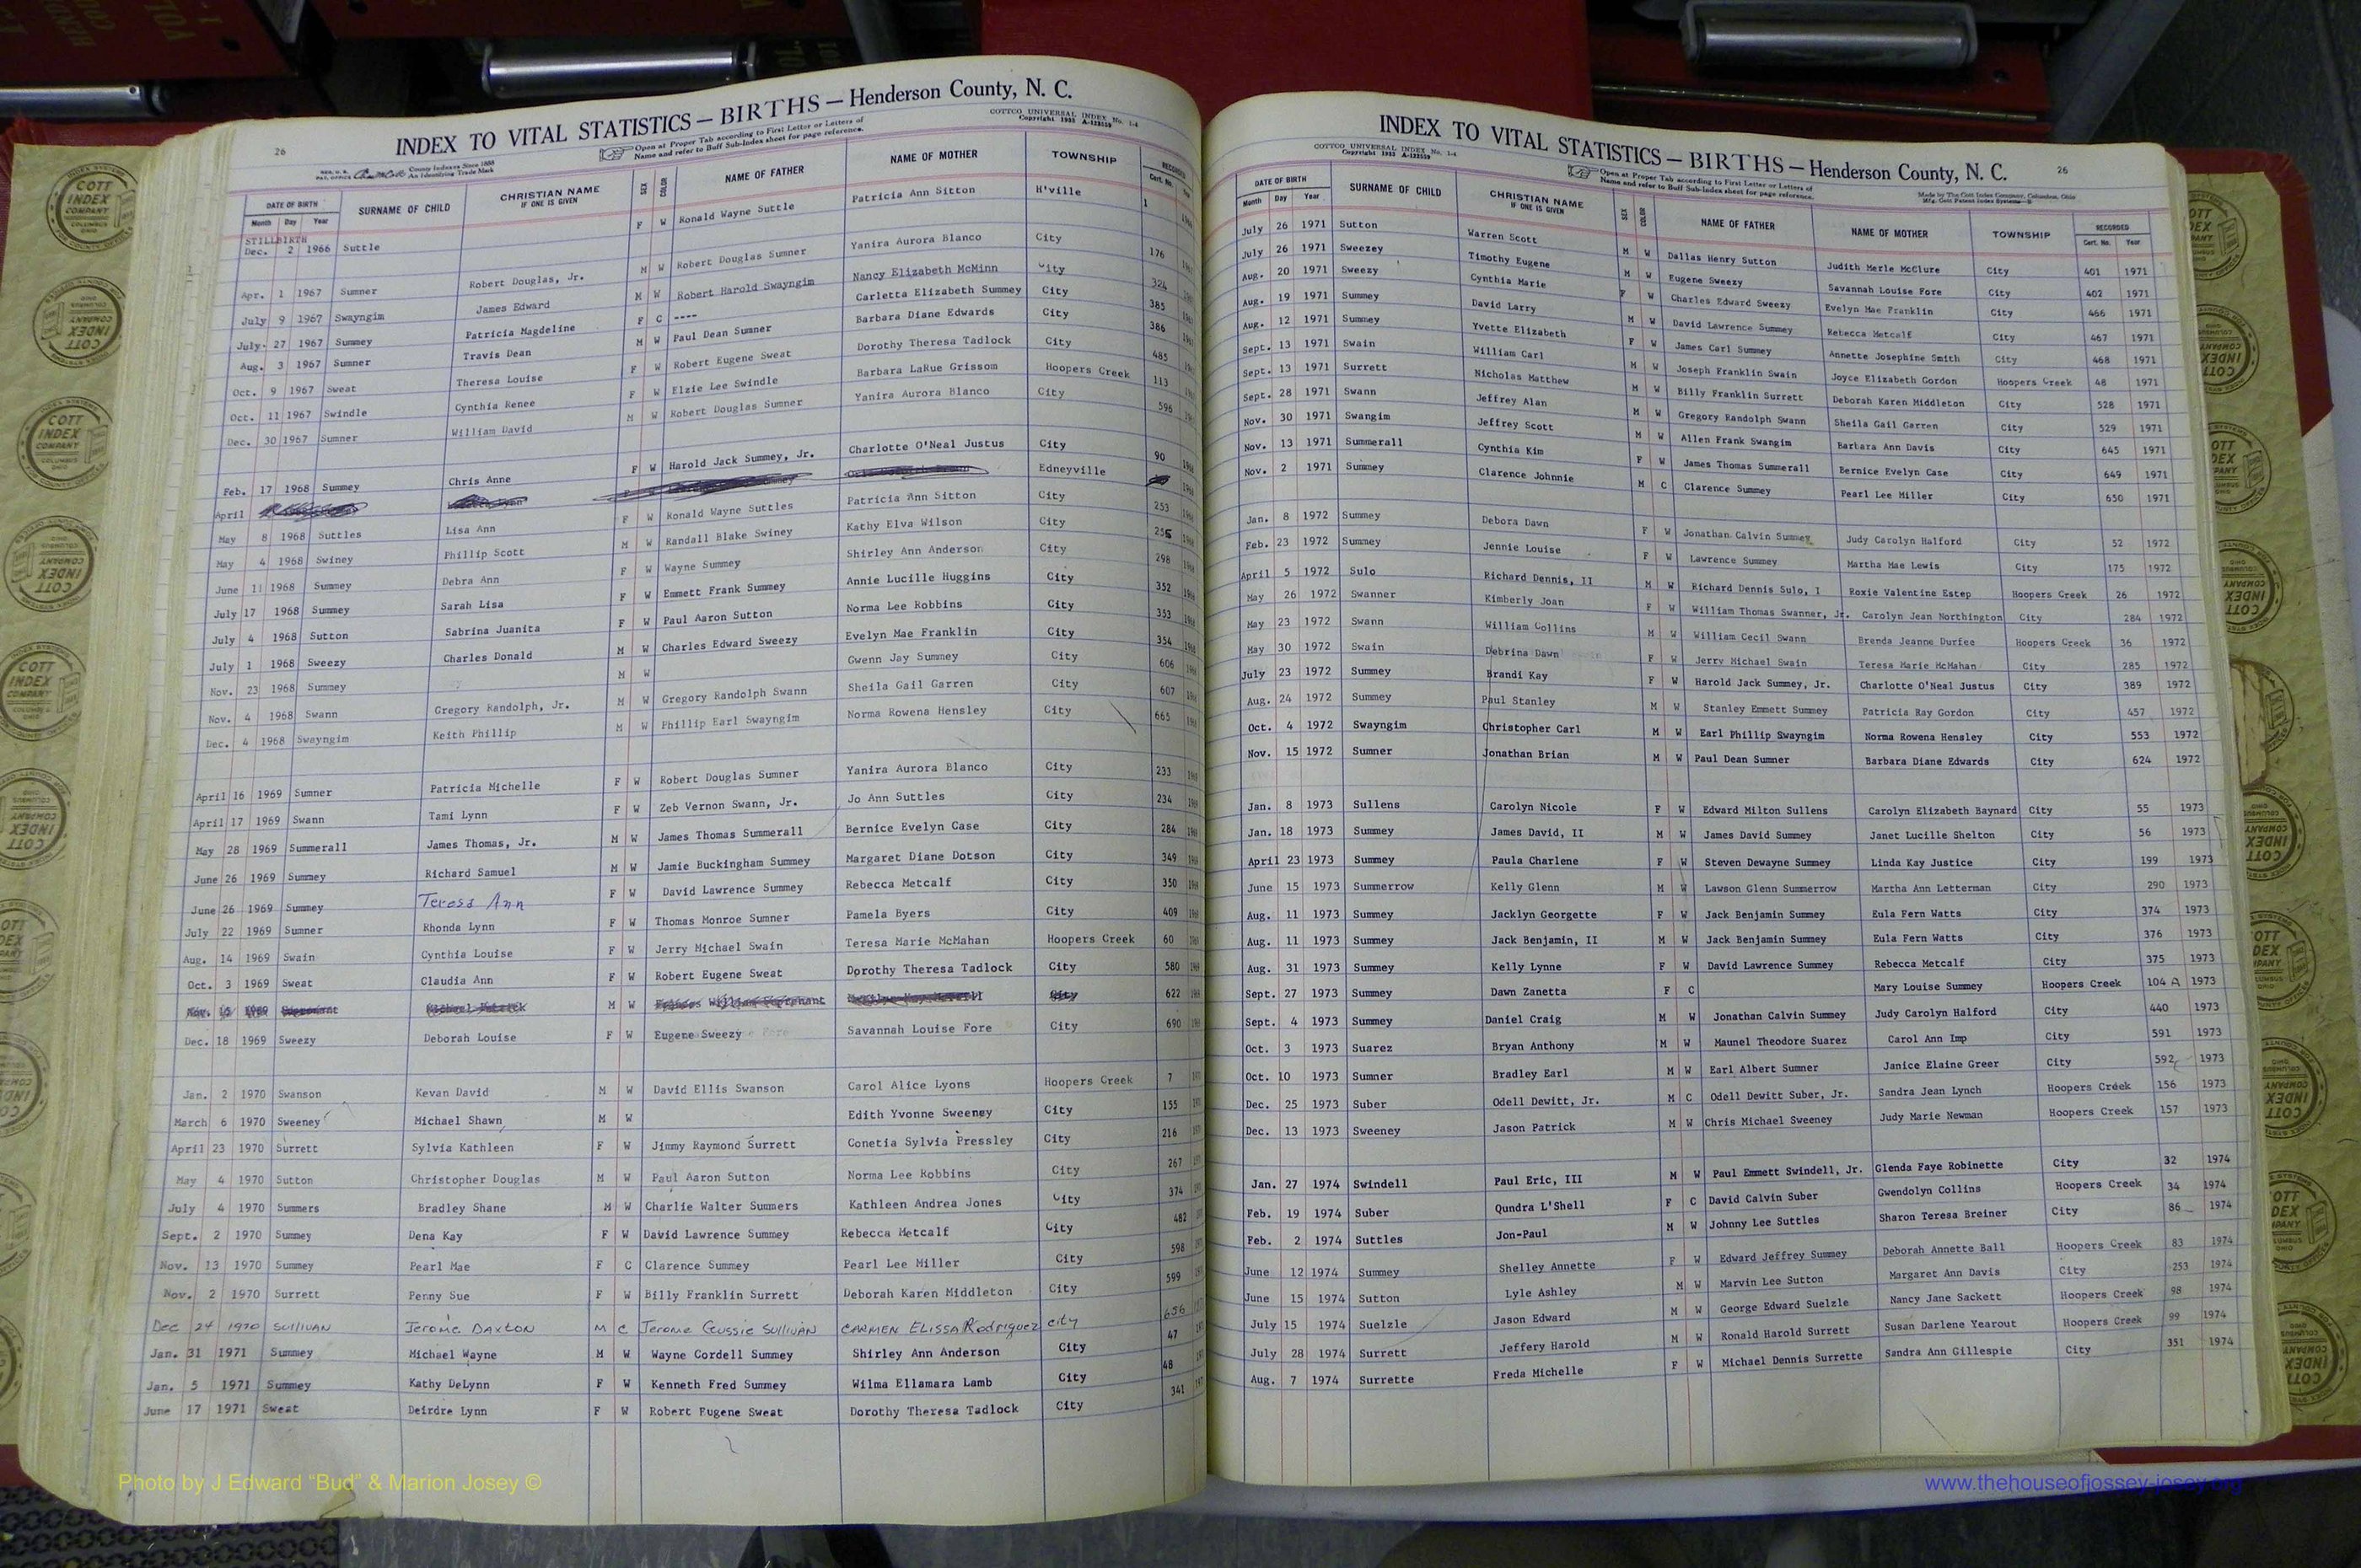 26
INDEX TO VITAL STATISTICS — BIRTHS — Henderson County, N. C.
COTTCO UNIVERSAL INDEX No. 1-4
Copyright 1935 A-122559
County Indexes Since 1888
An Identifying Trade Mark
Open at Proper Tab according to First Letter or Letters of
Name and refer to Buff Sub-Index sheet for page reference.
DATE OF BIRTH SURNAME OF CHILD CHRISTIAN NAME IF ONE IS GIVEN SEX COLOR NAME OF FATHER NAME OF MOTHER TOWNSHIP RECORDED
Month Day Year Cert. No.
STILLBIRTH
Dec. 2 1966 Suttle F W Ronald Wayne Suttle Patricia Ann Sitton H'ville 1
Apr. 1 1967 Sumner Robert Douglas, Jr. M W Robert Douglas Sumner Yanira Aurora Blanco City 176
July 9 1967 Swayngim James Edward M W Robert Harold Swayngim Nancy Elizabeth McMinn City 324
July 27 1967 Summey Patricia Magdeline F C ---- Carletta Elizabeth Summey City 385
Aug. 3 1967 Sumner Travis Dean M W Paul Dean Sumner Barbara Diane Edwards City 386
Oct. 9 1967 Sweat Theresa Louise F W Robert Eugene Sweat Dorothy Theresa Tadlock City 485
Oct. 11 1967 Swindle Cynthia Renee F W Elzie Lee Swindle Barbara LaRue Grissom Hoopers Creek 113
Dec. 30 1967 Sumner William David M W Robert Douglas Sumner Yanira Aurora Blanco City 596
Feb. 17 1968 Summey Chris Anne F W Harold Jack Summey, Jr. Charlotte O'Neal Justus City 90
April Edneyville
May 8 1968 Suttles Lisa Ann F W Ronald Wayne Suttles Patricia Ann Sitton City 253
May 4 1968 Swiney Phillip Scott M W Randall Blake Swiney Kathy Elva Wilson City 255
June 11 1968 Summey Debra Ann F W Wayne Summey Shirley Ann Anderson City 298
July 17 1968 Summey Sarah Lisa F W Emmett Frank Summey Annie Lucille Huggins City 352
July 4 1968 Sutton Sabrina Juanita F W Paul Aaron Sutton Norma Lee Robbins City 353
July 1 1968 Sweezy Charles Donald M W Charles Edward Sweezy Evelyn Mae Franklin City 354
Nov. 23 1968 Summey M W Gwenn Jay Summey City 606
Nov. 4 1968 Swann Gregory Randolph, Jr. M W Gregory Randolph Swann Sheila Gail Garren City 607
Dec. 4 1968 Swayngim Keith Phillip M W Phillip Earl Swayngim Norma Rowena Hensley City 665
April 16 1969 Sumner Patricia Michelle F W Robert Douglas Sumner Yanira Aurora Blanco City 233
April 17 1969 Swann Tami Lynn F W Zeb Vernon Swann, Jr. Jo Ann Suttles City 234
May 28 1969 Summerall James Thomas, Jr. M W James Thomas Summerall Bernice Evelyn Case City 284
June 26 1969 Summey Richard Samuel M W Jamie Buckingham Summey Margaret Diane Dotson City 349
June 26 1969 Summey Teresa Ann F W David Lawrence Summey Rebecca Metcalf City 350
July 22 1969 Sumner Rhonda Lynn F W Thomas Monroe Sumner Pamela Byers City 409
Aug. 14 1969 Swain Cynthia Louise F W Jerry Michael Swain Teresa Marie McMahan Hoopers Creek 60
Oct. 3 1969 Sweat Claudia Ann F W Robert Eugene Sweat Dorothy Theresa Tadlock City 580
Nov. 15 1969 Michael Patrick M W City 622
Dec. 18 1969 Sweezy Deborah Louise F W Eugene Sweezy Savannah Louise Fore City 690
Jan. 2 1970 Swanson Kevan David M W David Ellis Swanson Carol Alice Lyons Hoopers Creek 7
March 6 1970 Sweeney Michael Shawn M W Edith Yvonne Sweeney City 155
April 23 1970 Surrett Sylvia Kathleen F W Jimmy Raymond Surrett Conetia Sylvia Pressley City 216
May 4 1970 Sutton Christopher Douglas M W Paul Aaron Sutton Norma Lee Robbins City 267
July 4 1970 Summers Bradley Shane M W Charlie Walter Summers Kathleen Andrea Jones City 374
Sept. 2 1970 Summey Dena Kay F W David Lawrence Summey Rebecca Metcalf City 482
Nov. 13 1970 Summey Pearl Mae F C Clarence Summey Pearl Lee Miller City 598
Nov. 2 1970 Surrett Penny Sue F W Billy Franklin Surrett Deborah Karen Middleton City 599
Dec 24 1970 SULLIVAN Jerome DAXTON M C Jerome Gussie SULLIVAN CARMEN ELISSA Rodriguez city 656
Jan. 31 1971 Summey Michael Wayne M W Wayne Cordell Summey Shirley Ann Anderson City 47
Jan. 5 1971 Summey Kathy DeLynn F W Kenneth Fred Summey Wilma Ellamara Lamb City 48
June 17 1971 Sweat Deirdre Lynn F W Robert Eugene Sweat Dorothy Theresa Tadlock City 341
INDEX TO VITAL STATISTICS — BIRTHS — Henderson County, N. C.
26
COTTCO UNIVERSAL INDEX No. 1-4
Copyright 1935 A-122559
Open at Proper Tab according to First Letter or Letters of
Name and refer to Buff Sub-Index sheet for page reference.
Made by The Cott Index Company, Columbus, Ohio
DATE OF BIRTH SURNAME OF CHILD CHRISTIAN NAME IF ONE IS GIVEN SEX COLOR NAME OF FATHER NAME OF MOTHER TOWNSHIP RECORDED
Month Day Year Cert. No. Year
July 26 1971 Sutton Warren Scott M W Dallas Henry Sutton Judith Merle McClure City 401 1971
July 26 1971 Sweezey Timothy Eugene M W Eugene Sweezy Savannah Louise Fore City 402 1971
Aug. 20 1971 Sweezy Cynthia Marie F W Charles Edward Sweezy Evelyn Mae Franklin City 466 1971
Aug. 19 1971 Summey David Larry M W David Lawrence Summey Rebecca Metcalf City 467 1971
Aug. 12 1971 Summey Yvette Elizabeth F W James Carl Summey Annette Josephine Smith City 468 1971
Sept. 13 1971 Swain William Carl M W Joseph Franklin Swain Joyce Elizabeth Gordon Hoopers Creek 48 1971
Sept. 13 1971 Surrett Nicholas Matthew M W Billy Franklin Surrett Deborah Karen Middleton City 528 1971
Sept. 28 1971 Swann Jeffrey Alan M W Gregory Randolph Swann Sheila Gail Garren City 529 1971
Nov. 30 1971 Swangim Jeffrey Scott M W Allen Frank Swangim Barbara Ann Davis City 645 1971
Nov. 13 1971 Summerall Cynthia Kim F W James Thomas Summerall Bernice Evelyn Case City 649 1971
Nov. 2 1971 Summey Clarence Johnnie M C Clarence Summey Pearl Lee Miller City 650 1971
Jan. 8 1972 Summey Debora Dawn F W Jonathan Calvin Summey Judy Carolyn Halford City 52 1972
Feb. 23 1972 Summey Jennie Louise F W Lawrence Summey Martha Mae Lewis City 175 1972
April 5 1972 Sulo Richard Dennis, II M W Richard Dennis Sulo, I Roxie Valentine Estep Hoopers Creek 26 1972
May 26 1972 Swanner Kimberly Joan F W William Thomas Swanner, Jr. Carolyn Jean Northington City 284 1972
May 23 1972 Swann William Collins M W William Cecil Swann Brenda Jeanne Durfee Hoopers Creek 36 1972
May 30 1972 Swain Debrina Dawn F W Jerry Michael Swain Teresa Marie McMahan City 285 1972
July 23 1972 Summey Brandi Kay F W Harold Jack Summey, Jr. Charlotte O'Neal Justus City 389 1972
Aug. 24 1972 Summey Paul Stanley M W Stanley Emmett Summey Patricia Ray Gordon City 457 1972
Oct. 4 1972 Swayngim Christopher Carl M W Earl Phillip Swayngim Norma Rowena Hensley City 553 1972
Nov. 15 1972 Sumner Jonathan Brian M W Paul Dean Sumner Barbara Diane Edwards City 624 1972
Jan. 8 1973 Sullens Carolyn Nicole F W Edward Milton Sullens Carolyn Elizabeth Baynard City 55 1973
Jan. 18 1973 Summey James David, II M W James David Summey Janet Lucille Shelton City 56 1973
April 23 1973 Summey Paula Charlene F W Steven Dewayne Summey Linda Kay Justice City 199 1973
June 15 1973 Summerrow Kelly Glenn M W Lawson Glenn Summerrow Martha Ann Letterman City 290 1973
Aug. 11 1973 Summey Jacklyn Georgette F W Jack Benjamin Summey Eula Fern Watts City 374 1973
Aug. 11 1973 Summey Jack Benjamin, II M W Jack Benjamin Summey Eula Fern Watts City 376 1973
Aug. 31 1973 Summey Kelly Lynne F W David Lawrence Summey Rebecca Metcalf City 375 1973
Sept. 27 1973 Summey Dawn Zanetta F C Mary Louise Summey Hoopers Creek 104 A 1973
Sept. 4 1973 Summey Daniel Craig M W Jonathan Calvin Summey Judy Carolyn Halford City 440 1973
Oct. 3 1973 Suarez Bryan Anthony M W Maunel Theodore Suarez Carol Ann Imp City 591 1973
Oct. 10 1973 Sumner Bradley Earl M W Earl Albert Sumner Janice Elaine Greer City 592 1973
Dec. 25 1973 Suber Odell Dewitt, Jr. M C Odell Dewitt Suber, Jr. Sandra Jean Lynch Hoopers Creek 156 1973
Dec. 13 1973 Sweeney Jason Patrick M W Chris Michael Sweeney Judy Marie Newman Hoopers Creek 157 1973
Jan. 27 1974 Swindell Paul Eric, III M W Paul Emmett Swindell, Jr. Glenda Faye Robinette City 32 1974
Feb. 19 1974 Suber Qundra L'Shell F C David Calvin Suber Gwendolyn Collins Hoopers Creek 34 1974
Feb. 2 1974 Suttles Jon-Paul M W Johnny Lee Suttles Sharon Teresa Breiner City 86 1974
June 12 1974 Summey Shelley Annette F W Edward Jeffrey Summey Deborah Annette Ball Hoopers Creek 83 1974
June 15 1974 Sutton Lyle Ashley M W Marvin Lee Sutton Margaret Ann Davis City 253 1974
July 15 1974 Suelzle Jason Edward M W George Edward Suelzle Nancy Jane Sackett Hoopers Creek 98 1974
July 28 1974 Surrett Jeffery Harold M W Ronald Harold Surrett Susan Darlene Yearout Hoopers Creek 99 1974
Aug. 7 1974 Surrette Freda Michelle F W Michael Dennis Surrette Sandra Ann Gillespie City 351 1974
Photo by J Edward "Bud" & Marion Josey ©
www.thehouseofjossey-josey.org
COTT INDEX COMPANY COLUMBUS OHIO